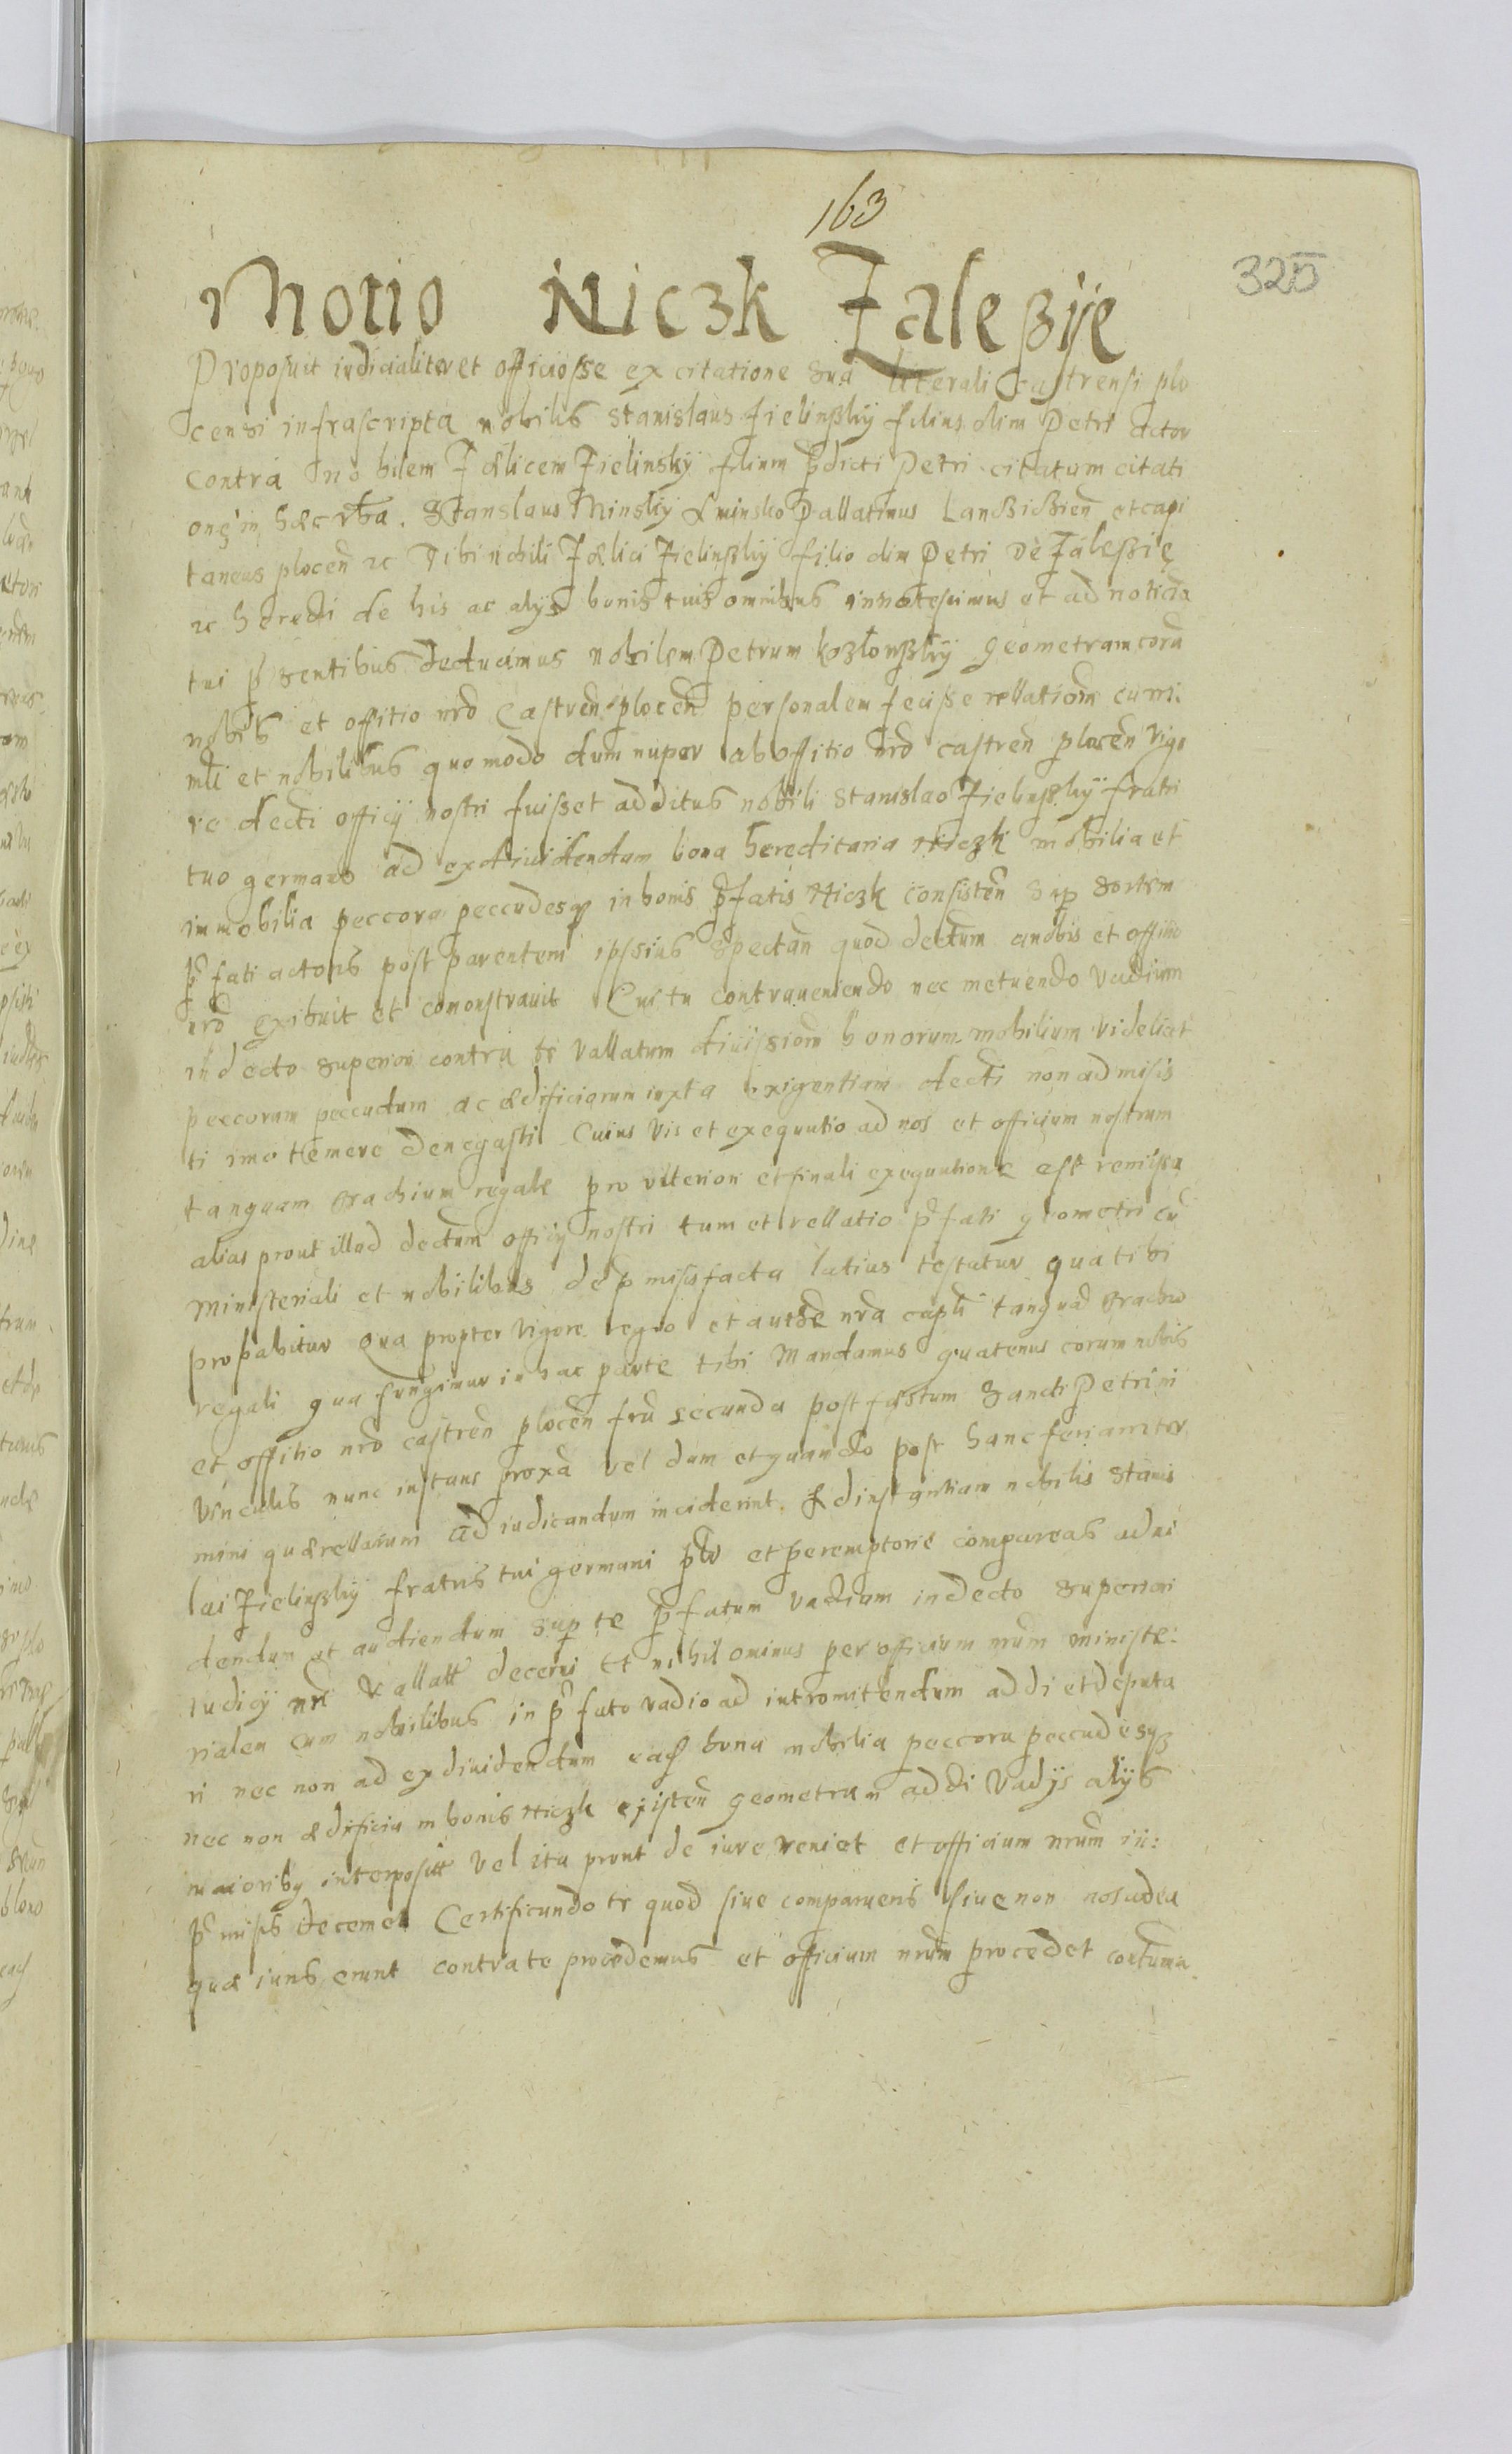 163
325
Motio Niczk Zaleßije
Proposuit iudicialiter et officiosse ex citatione sua literali castrensi plo
censi infrascripta nobilis Stanislaus Zielinßkÿ filius olim Petri actor
contra nobilem Fælicem Zielinskÿ filium p̄dicti Petri citatum citati
onē in hæc vba. Stanslaus Minskÿ de minsko Pallatinus Lanßißien̄ et capi
taneus plocen̄ ꝛc Tibi nobili Fælici Zielinßkÿ filio olim Petri de Zaleßie
ꝛc heredi de his ac alys bonis tuis omnibus innotescimus et ad noticia
tui p̄sentibus deducimus nobilem Petrum kozłowßkÿ geometram cora
nobis et offitio nr̄o Castren̄ plocen̄ personalem fecisse rellationē cum
mli et nobilibus quomodo dum nuper ab offitio nr̄o castren̄ plocen̄ vigo
re decti officÿ nostri fuisset additus nobili Stanislao Zielinßkÿ fratri
tuo germano ad exdiuidendum bona hereditaria Niczk mobilia et
immobilia peccora peccudesq̄ in bonis p̄fatis Niczk consisten̄ sup sortem
p̄fati actoris post parentem ipssius spectan̄ quod dectum a nobis et offitio
nr̄o exibuit et comonstrauit Cui tu contraueniendo nec metuendo vadium
in decto superiori contra te vallatum diuissionē bonorum mobilium videlicet
peccorum peccudum ac ædificiorum iuxta exigentiam decti non admisis
ti imo temere denegasti Cuius vis et exequutio ad nos et officium nostrum
tanquam brachium regale pro vlteriori et finali exequutione est remissa
alias prout illud dectum officÿ nostri tum et rellatio p̄fati geometri cū
ministeriali et nobilibus de p̄misis facta latius testatur qua tibi
probabitur Qua propter vigore regio et authe nr̄a capli tanquā brachio
regali qua fungimur in hac parte tibi Mandamus quatenus coram nobis
et offitio nr̄o castren̄ plocen̄ fria secunda post fæstum Sancti Petri in
vinculis nunc instans proxa vel dum et quando post hanc feriam ter
mini quærellarum ad iudicandum inciderint. Ad instantiam nobilis Stanis
lai Zielinßkÿ fratris tui germani ptō et peremptorie compareas ad vi
dendum et audiendum sup te p̄fatum vadium in decto superiori
iudicÿ nri vallatt decerni et nihil ominus per officium nrum ministe:
rialem cum nobilibus in p̄fato vadio ad intromittendum addi et deputa
ri nec non ad exdiuidendum bona mobilia peccora peccudesq3
nec non ædificia in bonis Niczk existen̄ geometram addi vadÿs alÿs
maioriby interpositt vel ita prout de iure veniet et officium nrum in:
p̄misis decernet Certificando te quod siue comparueris siue non nos ad ea
quæ iuris erunt contra te procedemus et officium nrum procedet contuma